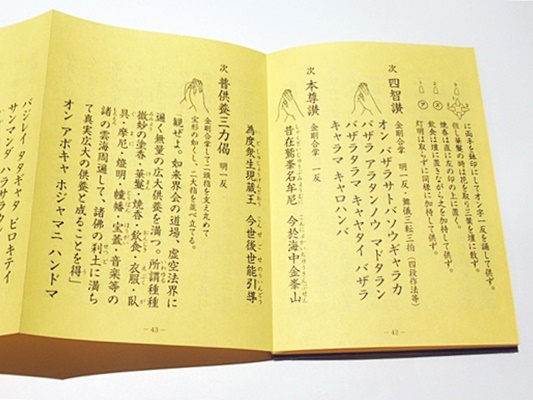 に両手を鉢印にしてオン字一反を誦して供ず。
但し華鬘の時は を取り三葉を壇に散ず。
焼香は直に左の印の上に置く。
飲食は壇に置きながら之を加持して供ず。
灯明は取らずに同様に加持して供ず。
次 四智讃 金剛合掌 明一反・ 三転三 (四段作法等)
オン バザラサトバソウギャラカ
バザラ アラタンノウ マドタラン
バザラタラマ キャヤタイ バザラ
キャラマ キャロハンバ
次 本尊讃 金剛合掌 一反
昔在鷲峯名牟尼 今於海中金峯山
－42－
為度衆生現蔵王 今世後世能引導
次 普供養三力偈 明一反
金剛合掌して二頭指を支え丸めて
宝形の如くし、二大指を並べ立てる。
「観ぜよ。如来界会の道場、虚空法界に
遍く無量の広大供養を満つ。所謂種種
微妙の塗香・華鬘・焼香・飲食・衣服・臥
具・摩尼・燈明・幢幡・宝蓋・音楽等の
諸の雲海周遍して、諸佛の刹土に満ち
て真実広大の供養と成ることを得」
オン アボキャ ホジャマニ ハンドマ
－43－
バジレイ タタギャタ ビロキテイ
サンマンダ ハラサラウ